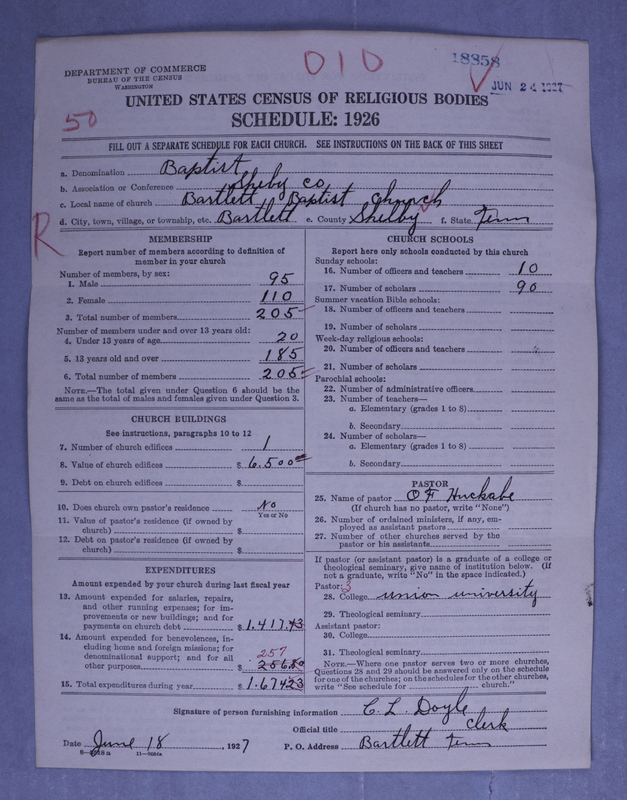 DEPARTMENT OF COMMERCE
BUREAU OF THE CENSUS
WASHINGTON
010
18358
JUN 24 1927
50
UNITED STATES CENSUS OF RELIGIOUS BODIES
SCHEDULE: 1926
FILL OUT A SEPARATE SCHEDULE FOR EACH CHURCH. SEE INSTRUCTIONS ON THE BACK OF THIS SHEET
a. Denomination Baptist
b. Association or Conference Shelby co
c. Local name of church Bartlett Baptist church
d. City, town, village, or township, etc. Bartlett e. County Shelby f. State Tenn
R
MEMBERSHIP
Report number of members according to definition of
member in your church
Number of members, by sex:
1. Male 95
2. Female 110
3. Total number of members 205
Number of members under and over 13 years old:
4. Under 13 years of age 20
5. 13 years old and over 185
6. Total number of members 205
NOTE.—The total given under Question 6 should be the
same as the total of males and females given under Question 3.
CHURCH BUILDINGS
See instructions, paragraphs 10 to 12
7. Number of church edifices 1
8. Value of church edifices $ 6.500
9. Debt on church edifices $
10. Does church own pastor's residence No
Yes or No
11. Value of pastor's residence (if owned by
church) $
12. Debt on pastor's residence (if owned by
church) $
EXPENDITURES
Amount expended by your church during last fiscal year
13. Amount expended for salaries, repairs,
and other running expenses; for im-
provements or new buildings; and for
payments on church debt $ 1.417.43
14. Amount expended for benevolences, in-
cluding home and foreign missions; for
denominational support; and for all 257
other purposes $ 256.80
15. Total expenditures during year $ 1.67423
CHURCH SCHOOLS
Report here only schools conducted by this church
Sunday schools:
16. Number of officers and teachers 10
17. Number of scholars 90
Summer vacation Bible schools:
18. Number of officers and teachers
19. Number of scholars
Week-day religious schools:
20. Number of officers and teachers
21. Number of scholars
Parochial schools:
22. Number of administrative officers
23. Number of teachers—
a. Elementary (grades 1 to 8)
b. Secondary
24. Number of scholars—
a. Elementary (grades 1 to 8)
b. Secondary
PASTOR
25. Name of pastor O F Huckabe
(If church has no pastor, write "None")
26. Number of ordained ministers, if any, em-
ployed as assistant pastors
27. Number of other churches served by the
pastor or his assistants
If pastor (or assistant pastor) is a graduate of a college or
theological seminary, give name of institution below. (If
not a graduate, write "No" in the space indicated.)
Pastor: 3
28. College union university
29. Theological seminary
Assistant pastor:
30. College
31. Theological seminary
NOTE.—Where one pastor serves two or more churches,
Questions 28 and 29 should be answered only on the schedule
for one of the churches; on the schedules for the other churches,
write "See schedule for church."
Signature of person furnishing information C. L. Doyle
Official title clerk
Date June 18, 1927 P. O. Address Bartlett Tenn